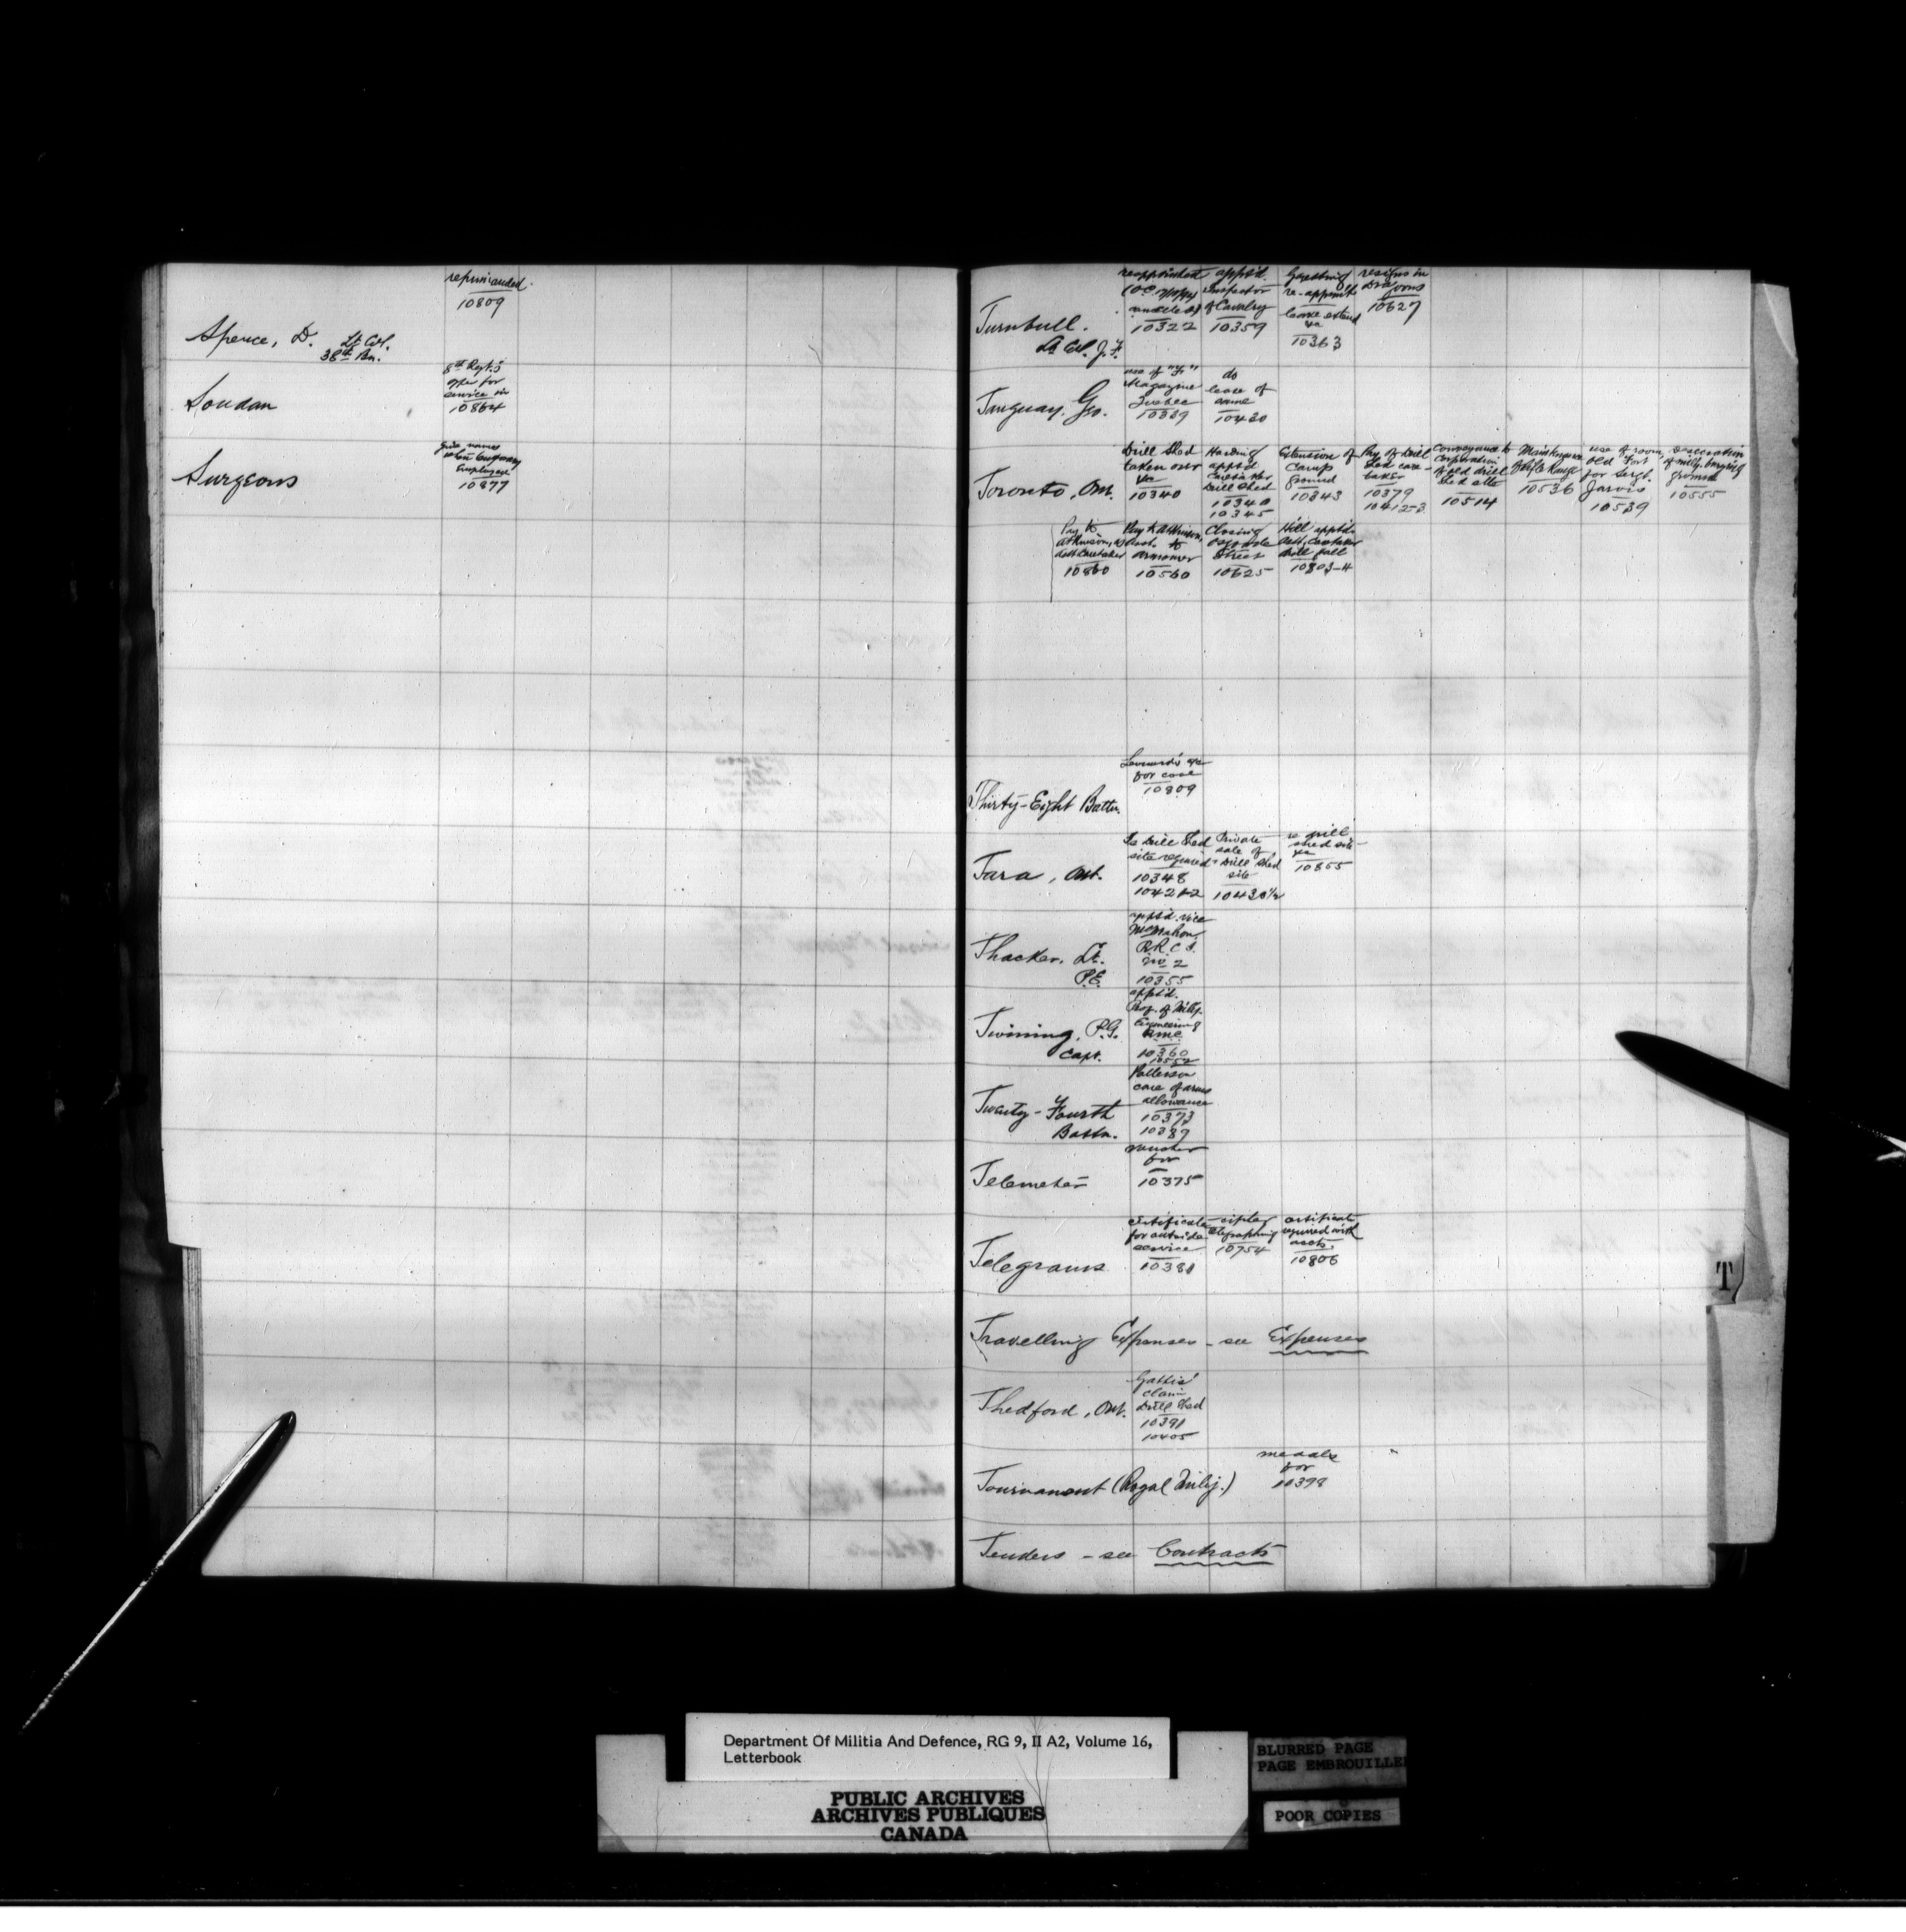 reprimanded
10809
Spence, D. Lt. Col.
38th Bn.
8th Regt's
offer for
service in
10864
Soudan
Give names
when temporary
employed
10877
Surgeons
reappointed
10322
apptd.
Inspector
of Cavalry
10359
re-appmt.
leave extend
10363
resigns in
Dragoons
10627
Turnbull.
Lt. Col. J. F.
use of "F"
Magazine
Quebec
10339
do
lease of
same
10430
Tanguay, Geo.
Drill Shed
taken over
10340
Harding
apptd
Caretaker
Drill Shed
10340
10345
Extension of
Camp
ground
10343
Pay of Drill
Shed care-
taker
10379
10412-3
Conveyance to
Corporation
of old drill
shed site
10514
Maintenance
of Rifle Range
10536
use of room,
Old Fort
for Sergt.
Jarvis
10539
Desecration
of mility. burying
ground
10555
Toronto, Ont.
Pay to
Atkinson, as
Asst. Caretaker
10860
Pay to Atkinson,
Asst. to
armourer
10560
Closing
Street
10625
Hill apptd.
Asst. Caretaker
Drill Hall
10803-4
for care
10809
Thirty-Eight Battn.
Re Drill Shed
site required
10348
10421-2
Private
sale of
Drill Shed
site
10430½
re Drill
shed site
10855
Tara, Ont.
apptd. vice
McMahon,
R.R.C.I.
No 2
10355
Thacker, Lt.
P.E.
apptd.
Prof. of Milty.
Engineering
RMC
10360
10552
Twining, P.G.
Capt.
Patterson
care of arms
allowance
10373
10389
Twenty-Fourth
Battn.
voucher
for
10375
Telemeter
certificate
for outside
service
10381
cipher
telegraphing
10754
certificate
required with
accts.
10806
Telegrams
Travelling Expenses - see Expenses
claim
Drill Shed
10391
10405
Thedford, Ont.
medals
for
10398
Tournament (Royal Mility.)
Tenders - see Contracts
T
Department Of Militia And Defence, RG 9, II A2, Volume 16,
Letterbook
PUBLIC ARCHIVES
ARCHIVES PUBLIQUES
CANADA
BLURRED PAGE
PAGE EMBROUILLE
POOR COPIES